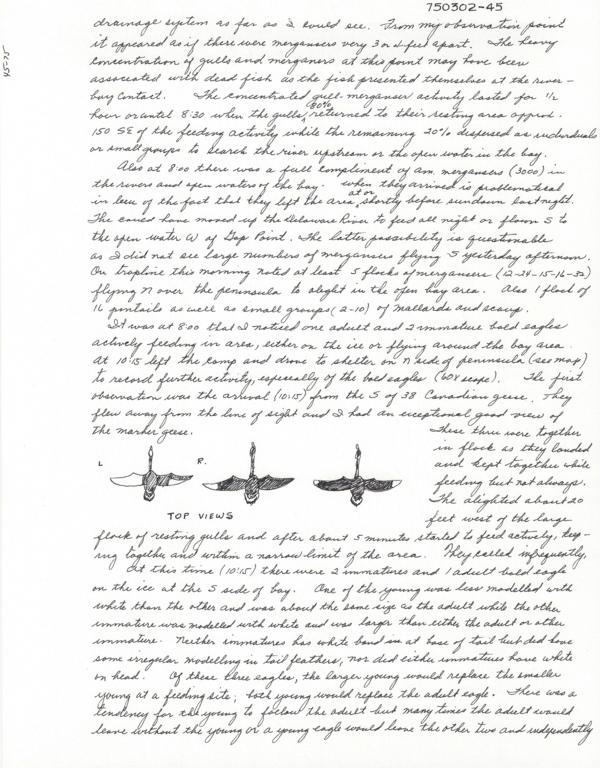 750302-45
45-75
drainage system as far as I could see. From my observation point
it appeared as if there were mergansers very 3 or 4 feet apart. The heavy
concentration of gulls and mergansers at this point may have been
associated with dead fish as the fish presented themselves at the river-
bay contact. The concentrated gull-merganser activity lasted for 1/2
hour or until 8:30 when the gulls, 80% returned to their resting area approx.
150 SE of the feeding activity while the remaining 20% dispersed as individuals
or small groups to search the river upstream or the open water in the bay.
Also at 8:00 there was a full compliment of am. mergansers (3000) in
the rivers and open waters of the bay. When they arrived is problematical
in lieu of the fact that they left the area, at or shortly before sundown last night.
The could have moved up the Delaware River to feed all night or flown S to
the open water W of Gap Point. The latter possibility is questionable
as I did not see large numbers of mergansers flying S yesterday afternoon.
On trapline this morning noted at least 5 flocks of mergansers (12-24-15-16-32)
flying N over the peninsula to alight in the open bay area. Also 1 flock of
16 pintails as well as small groups (2-10) of mallards and scaup.
It was at 8:00 that I noticed one adult and 2 immature bald eagles
actively feeding in area, either on the ice or flying around the bay area.
At 10:15 left the camp and drove to shelter on N side of peninsula (see map)
to record further activity, especially of the bald eagles (60X scope). The first
observation was the arrival (10:15) from the S of 38 Canadian geese. They
flew away from the line of sight and I had an exceptional good view of
the marker geese.
L
R.
TOP VIEWS
These three were together
in flock as they landed
and kept together while
feeding but not always.
The alighted about 20
feet west of the large
flock of resting gulls and after about 5 minutes started to feed actively, keep-
ing together and within a narrow limit of the area. They called infrequently.
At this time (10:15) there were 2 immatures and 1 adult bald eagle
on the ice at the S side of bay. One of the young was less modelled with
white than the other and was about the same size as the adult while the other
immature was modelled with white and was larger than either the adult or other
immature. Neither immatures has white band in at base of tail but did have
some irregular modelling in tail feathers, nor did either immatures have white
on head. Of these three eagles, the larger young would replace the smaller
young at a feeding site; both young would replace the adult eagle. There was a
tendency for the young to follow the adult but many times the adult would
leave without the young or a young eagle would leave the other two and independently